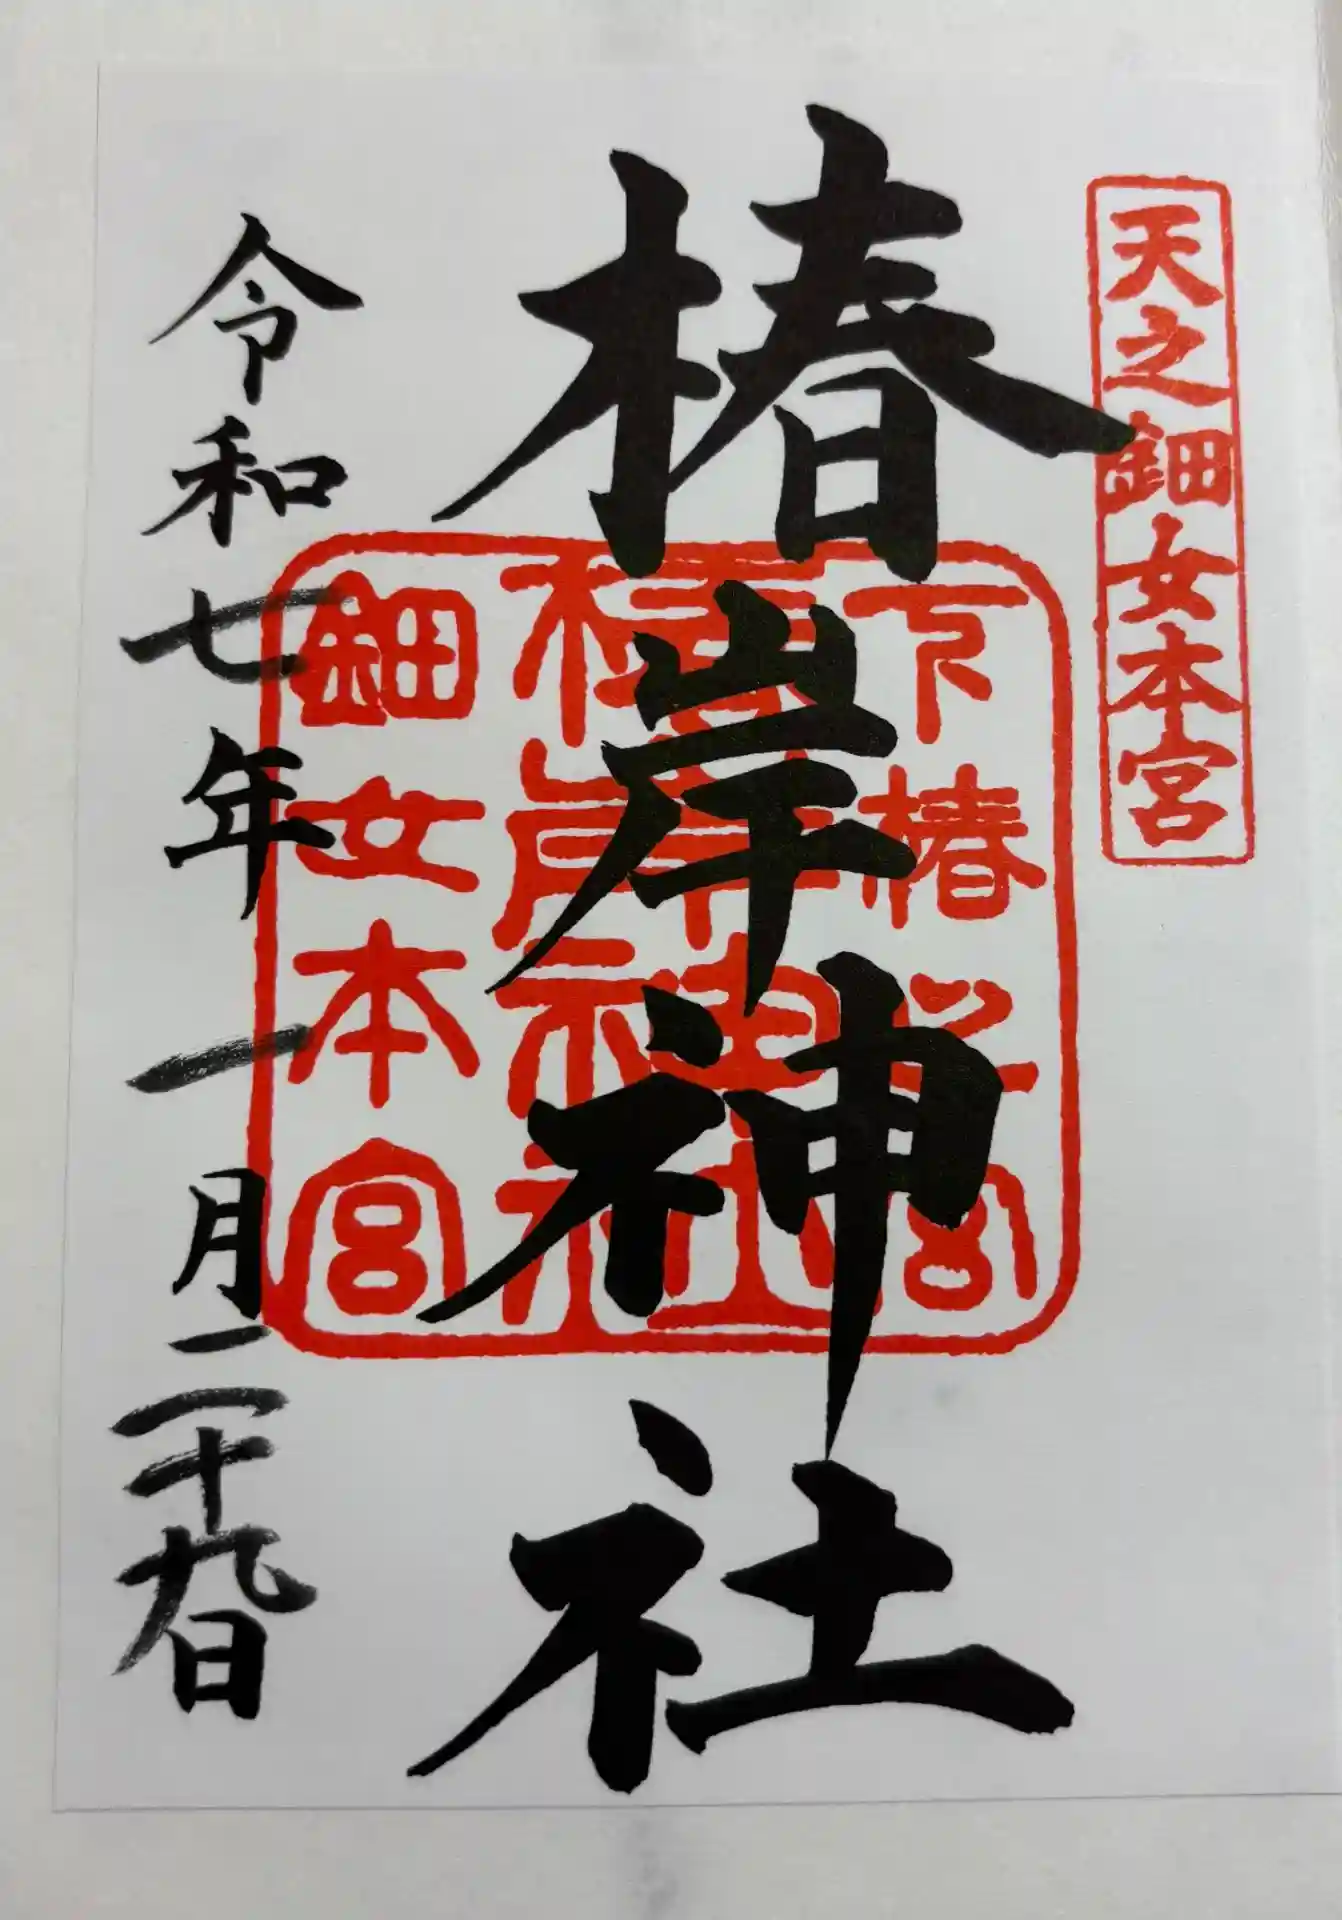 天之鈿女本宮
椿岸神社
下椿宮
椿岸神社
鈿女本宮
令和七年一月二十九日